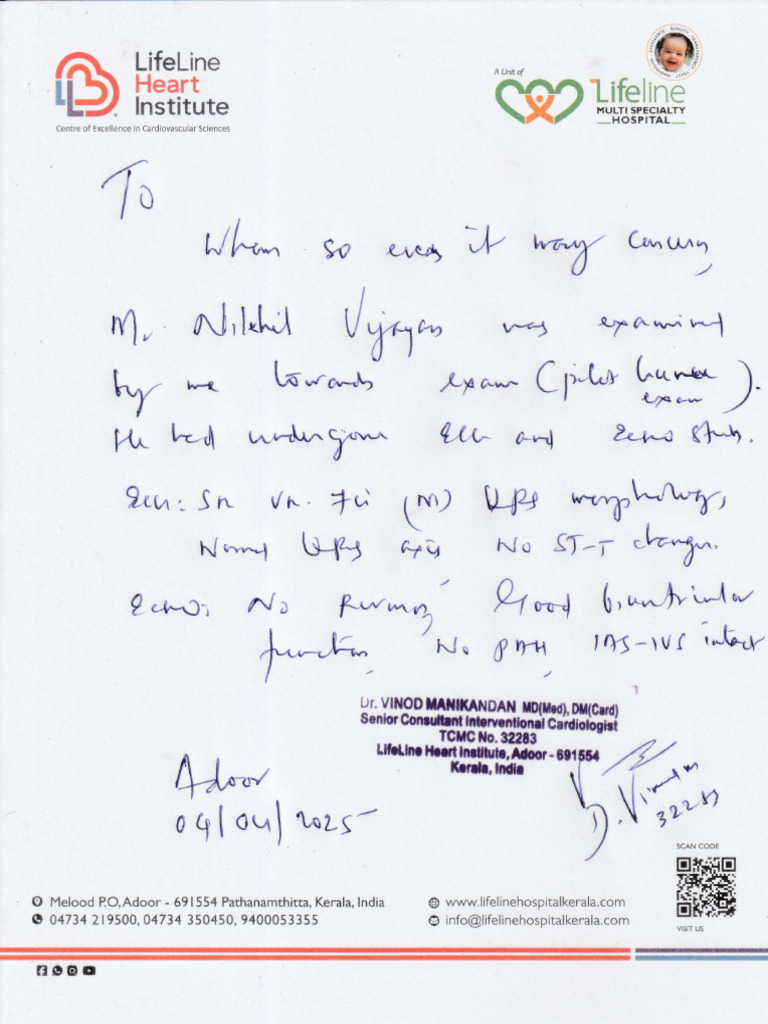 LifeLine
Heart
Institute
Centre of Excellence in Cardiovascular Sciences
A Unit of
Lifeline
MULTI SPECIALTY
HOSPITAL
To
Whom so ever it may concern,
Mr Nilekhil Vijayan was examined
by me towards exam (pilot
exam).
He had undergone ECG and Echo Study.
ECG: SR VR. 72i (N) QRS morphology,
Normal QRS axis, No ST-T changes.
Echo: No RWMA, Good biventricular
function, No PAH, IAS-IVS intact
Dr. VINOD MANIKANDAN MD(Med), DM(Card)
Senior Consultant Interventional Cardiologist
TCMC No. 32283
LifeLine Heart Institute, Adoor - 691554
Kerala, India
Adoor
04/04/2025
Dr. Vinod
32283
SCAN CODE
VISIT US
Melood P.O, Adoor - 691554 Pathanamthitta, Kerala, India
04734 219500, 04734 350450, 9400053355
www.lifelinehospitalkerala.com
info@lifelinehospitalkerala.com